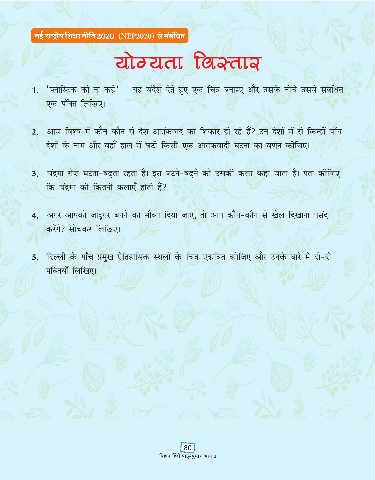 नई राष्ट्रीय शिक्षा नीति 2020 (NEP2020) से संबंधित
योग्यता विस्तार
1. 'प्लास्टिक को ना कहें' यह संदेश देते हुए एक चित्र बनाइए और उसके नीचे उससे संबंधित
एक पंक्ति लिखिए।
2. आज विश्व में कौन-कौन से देश आतंकवाद का शिकार हो रहे हैं? उन देशों में से किन्हीं पाँच
देशों के नाम और वहाँ हाल में घटी किसी एक आतंकवादी घटना का वर्णन कीजिए।
3. चंद्रमा रोज घटता-बढ़ता रहता है। इस घटने-बढ़ने को उसकी कला कहा जाता है। पता कीजिए
कि चंद्रमा की कितनी कलाएँ होती हैं?
4. अगर आपको जादूगर बनने का मौका दिया जाए, तो आप कौन-कौन से खेल दिखाना पसंद
करेंगे? सोचकर लिखिए।
5. दिल्ली के पाँच प्रमुख ऐतिहासिक स्थलों के चित्र एकत्रित कीजिए और उनके बारे में दो-दो
पंक्तियाँ लिखिए।
80